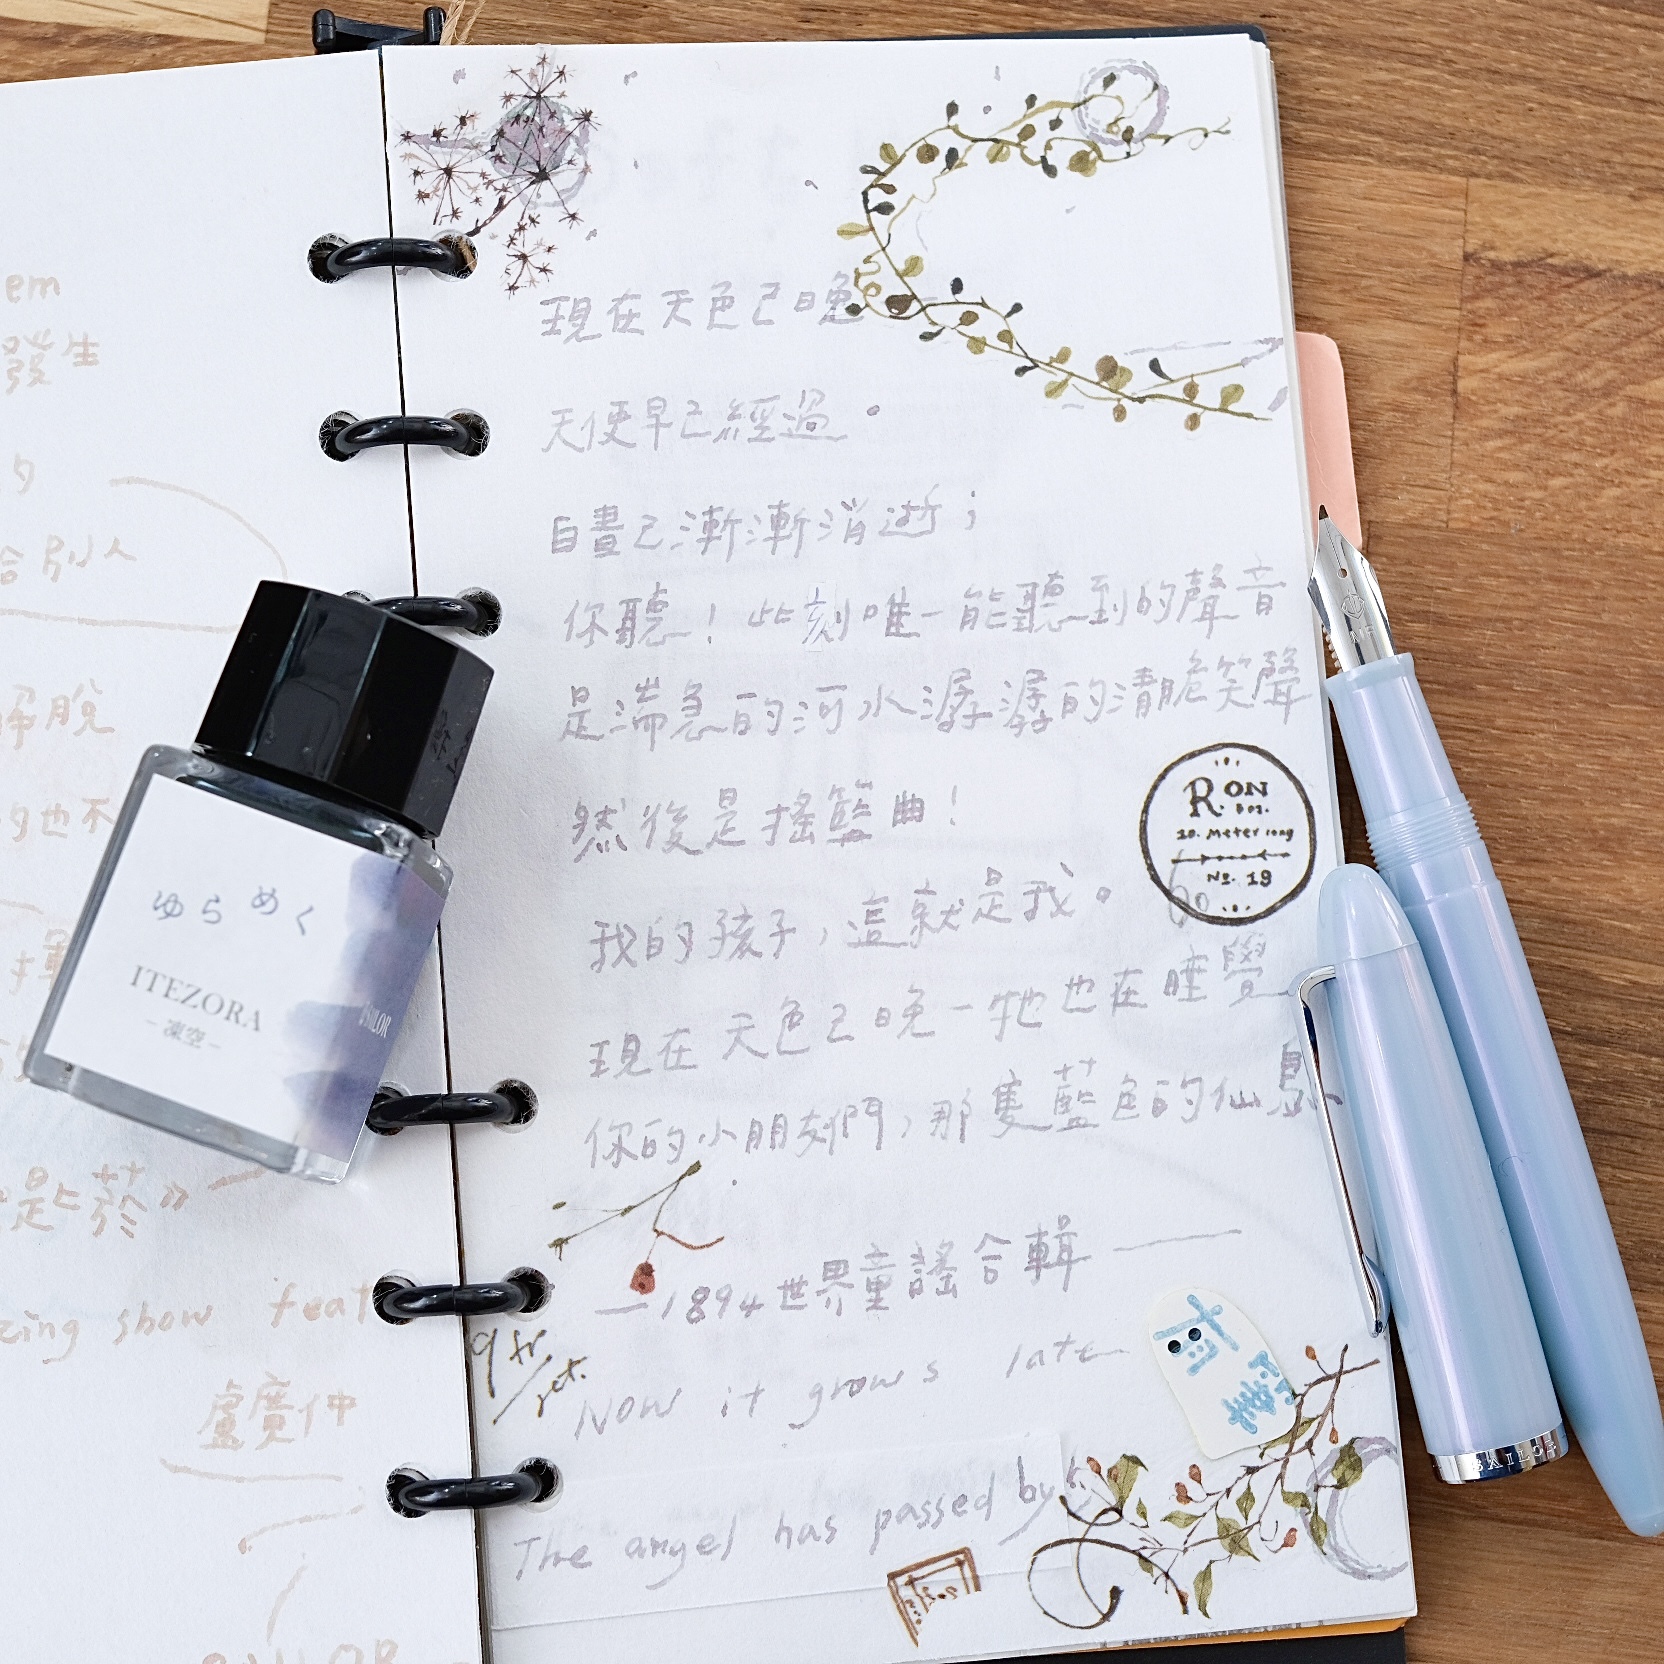 em
發生
夕
給別人
解脫
夕也不
是上菸》
zing show feat
盧廣仲
SAILOR
ゆらめく
ITEZORA
–凍空–
SAILOR
現在天色已晚
天使早已經過。
白晝已漸漸消逝；
你聽！此刻唯一能聽到的聲音
是湍急的河水潺潺的清脆笑聲
然後是搖籃曲！
我的孩子，這就是我。
現在天色已晚－牠也在睡覺
你的小朋友們，那隻藍色的仙
—1894世界童謠合輯——
Now it grows late
The angel has passed by
RON
20. Meter long
No. 19
9 fr.
/set.
MF
SAILOR